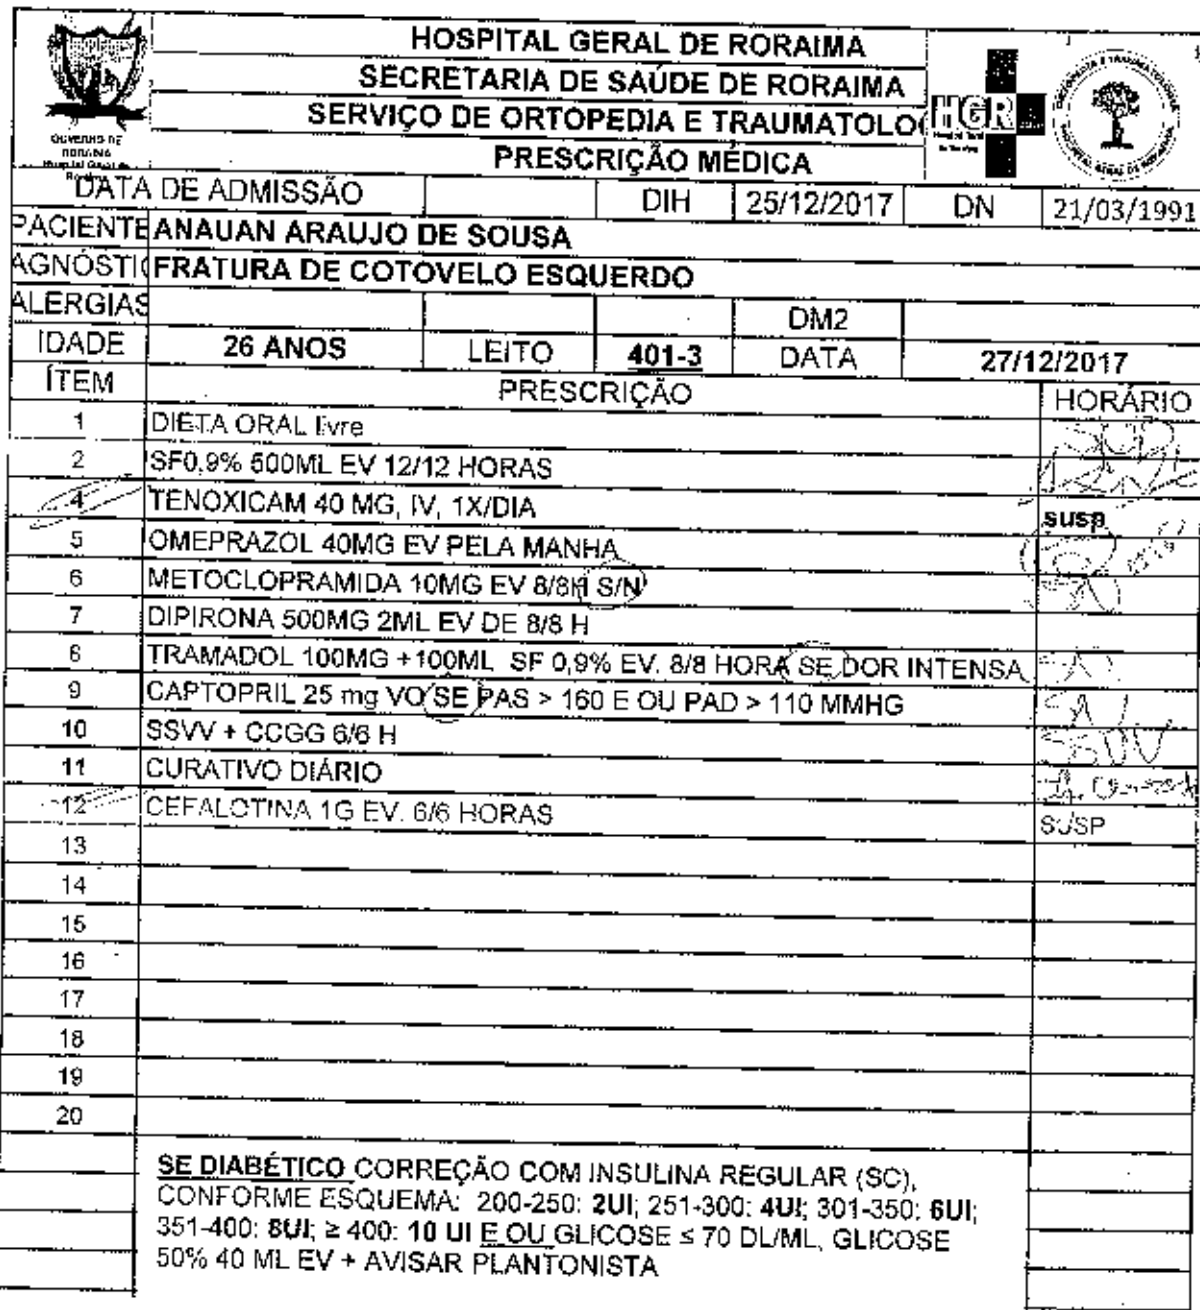 HOSPITAL GERAL DE RORAIMA
SECRETARIA DE SAÚDE DE RORAIMA
SERVIÇO DE ORTOPEDIA E TRAUMATOLO
PRESCRIÇÃO MÉDICA
GOVERNO DE
RORAIMA
HGR
DATA DE ADMISSÃO DIH 25/12/2017 DN 21/03/1991
PACIENTE ANAUAN ARAUJO DE SOUSA
AGNÓSTI FRATURA DE COTOVELO ESQUERDO
ALERGIAS DM2
IDADE 26 ANOS LEITO 401-3 DATA 27/12/2017
ÍTEM PRESCRIÇÃO HORÁRIO
1 DIETA ORAL livre
2 SF0,9% 500ML EV 12/12 HORAS
4 TENOXICAM 40 MG, IV, 1X/DIA susp
5 OMEPRAZOL 40MG EV PELA MANHA
6 METOCLOPRAMIDA 10MG EV 8/8H S/N
7 DIPIRONA 500MG 2ML EV DE 8/8 H
8 TRAMADOL 100MG +100ML SF 0,9% EV. 8/8 HORA SE DOR INTENSA
9 CAPTOPRIL 25 mg VO SE PAS > 160 E OU PAD > 110 MMHG
10 SSVV + CCGG 6/6 H
11 CURATIVO DIÁRIO
12 CEFALOTINA 1G EV. 6/6 HORAS SUSP
13
14
15
16
17
18
19
20
SE DIABÉTICO CORREÇÃO COM INSULINA REGULAR (SC),
CONFORME ESQUEMA: 200-250: 2UI; 251-300: 4UI; 301-350: 6UI;
351-400: 8UI; ≥ 400: 10 UI E OU GLICOSE ≤ 70 DL/ML, GLICOSE
50% 40 ML EV + AVISAR PLANTONISTA